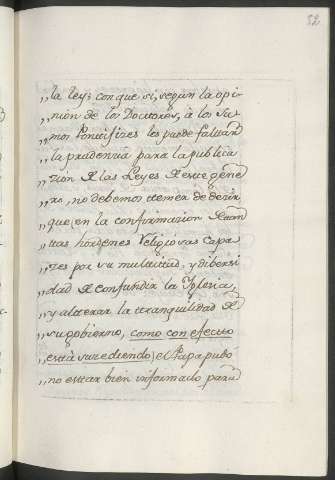 52
„la ley; con que si, según la opi-
„nion de los Doctores, à los Su-
„mos Pontifizes les puede faltar
„la prudenzia para la publica-
„zion de las Leyes de este gene-
„ro, no debemos temer de dezir,
„que, en la confirmazion de tan-
„tas hórdenes Religiosas capa-
„zes por su multitud, y diversi-
„dad de confundir la Yglesia,
„y alterar la tranquilidad de
„su gobierno, como con efecto
„está suzediendo; el Papa pudo
„no estar bien informado para